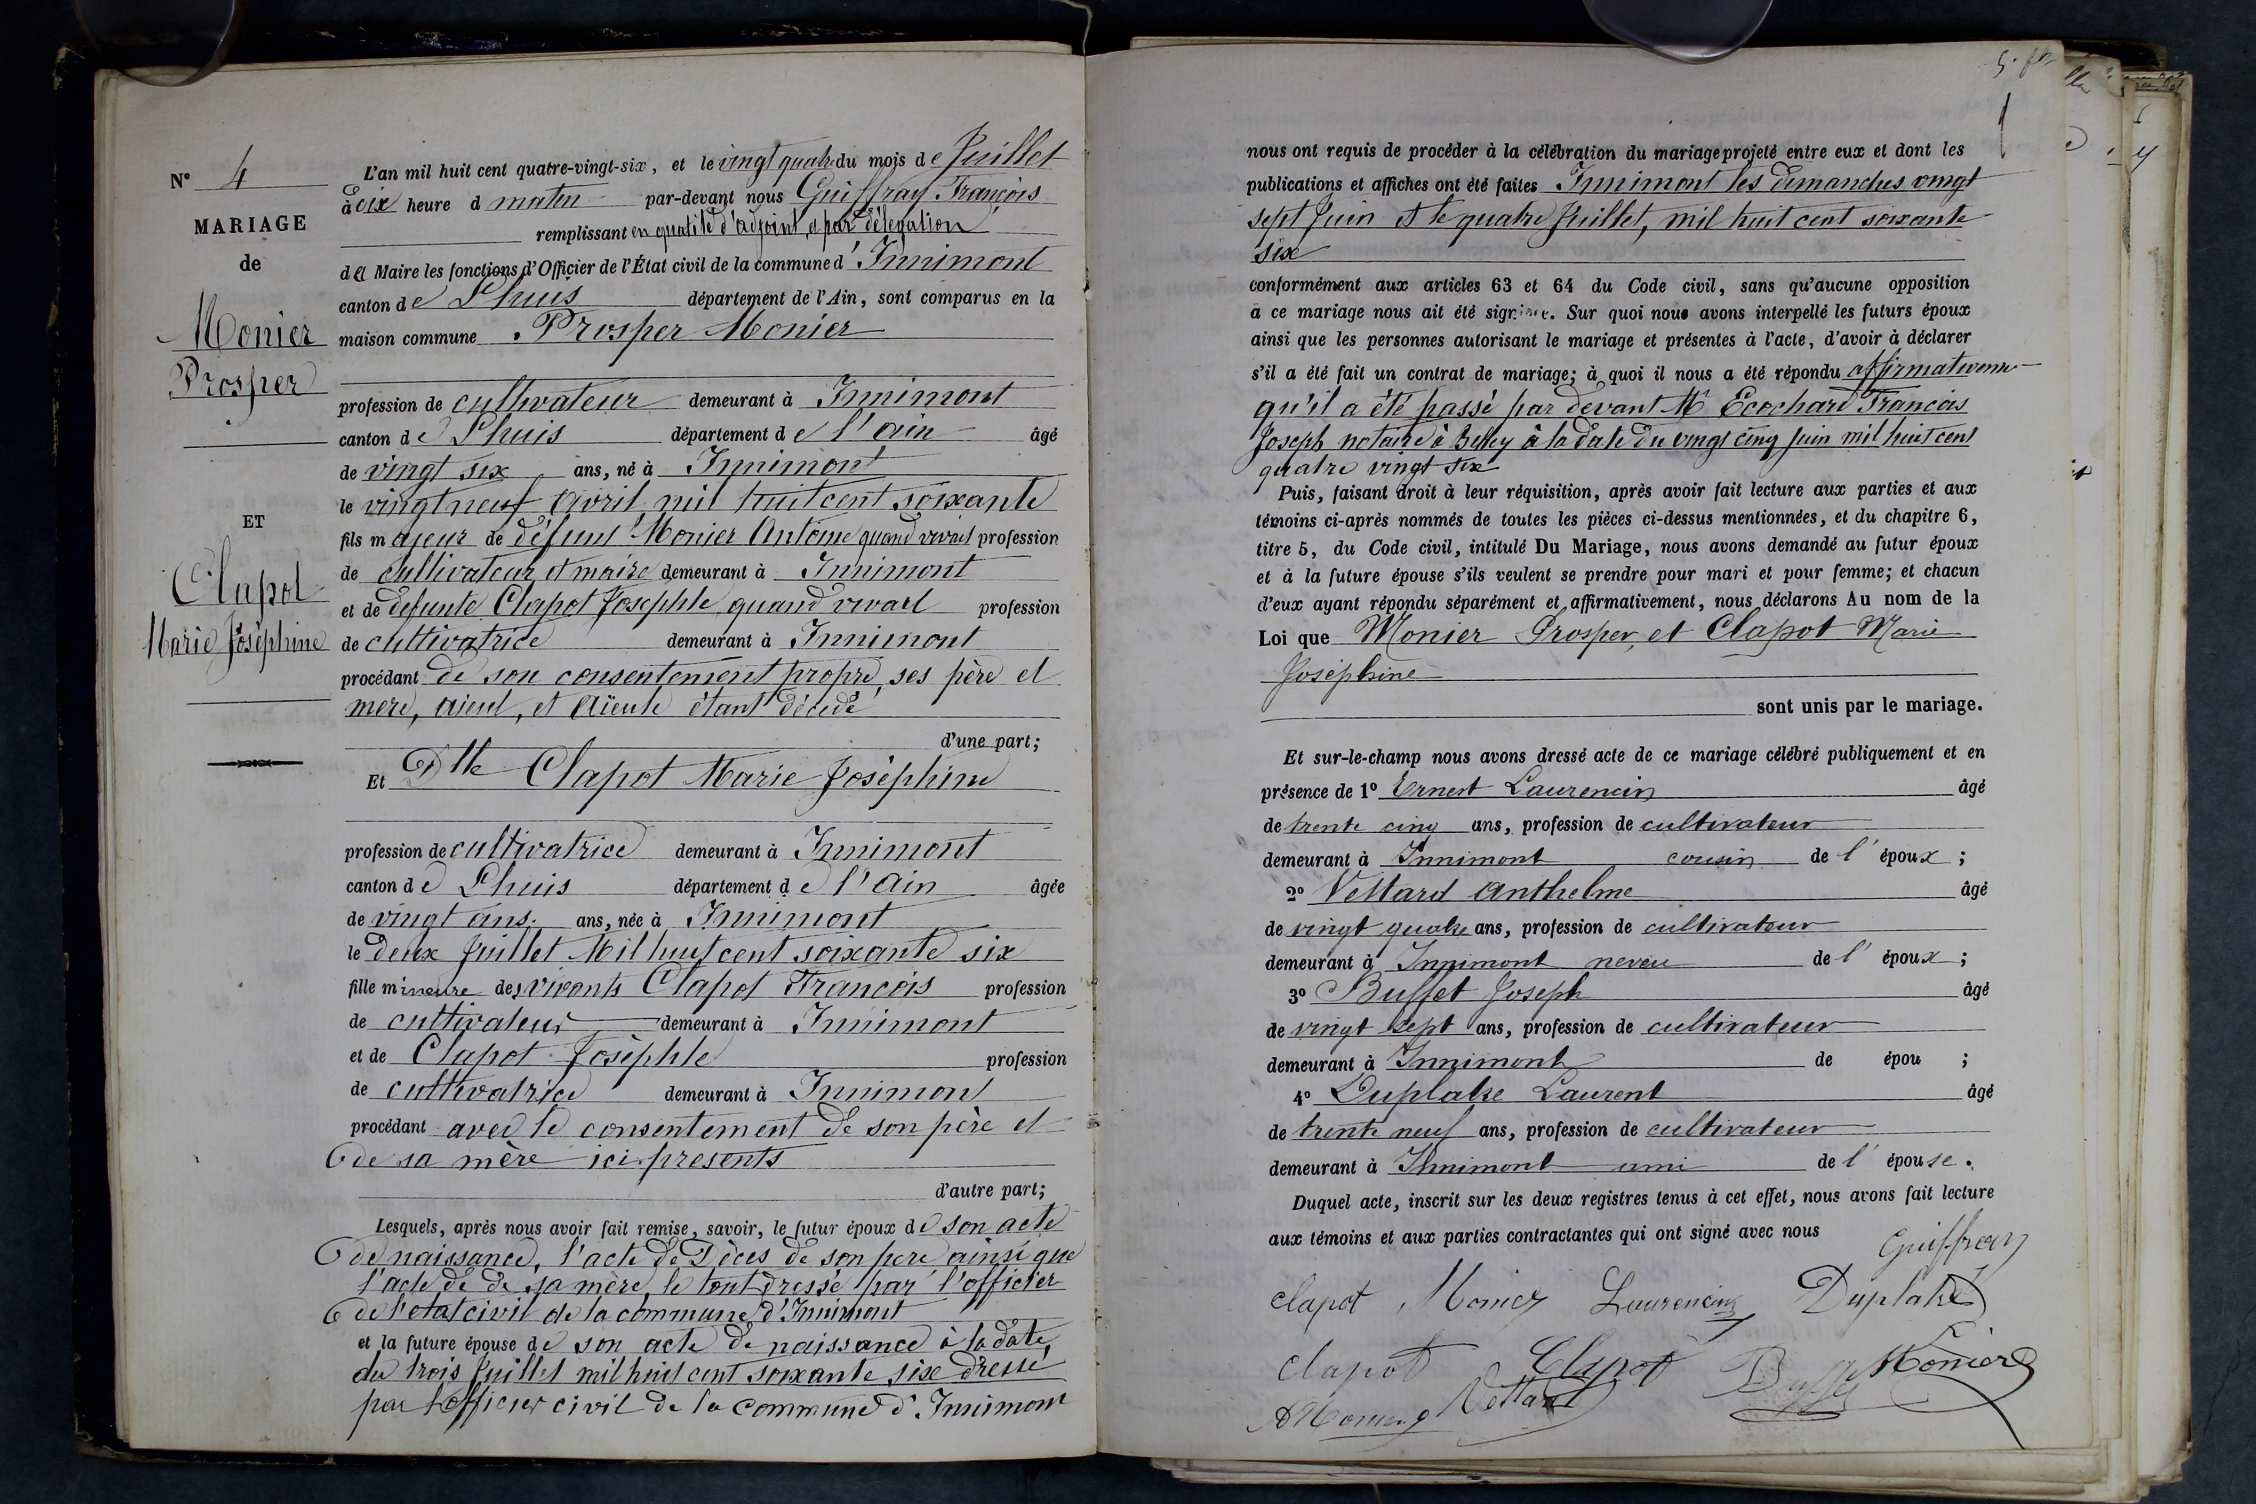 N° 4
MARIAGE
de
Monier
Prosper
ET
Clapot
Marie Joséphine
L'an mil huit cent quatre-vingt-six, et le vingt quatre du mois de Juillet
à dix heure d matin par-devant nous Guiffray François
remplissant en qualité d'adjoint, et par délégation
del Maire les fonctions d'Officier de l'État civil de la commune d'Innimont
canton de Lhuis département de l'Ain, sont comparus en la
maison commune Prosper Monier
profession de cultivateur demeurant à Innimont
canton de Lhuis département de l'ain âgé
de vingt six ans, né à Innimont
le vingt neuf avril mil huit cent soixante
fils majeur de défunt Monier Antoine quand vivait profession
de cultivateur et maire demeurant à Innimont
et de defunte Clapot Josephte quand vivait profession
de cultivatrice demeurant à Innimont
procédant de son consentement propre, ses père et
mere, aieul, et aïeule étant décédé
d'une part;
Et Dlle Clapot Marie Joséphine
profession de cultivatrice demeurant à Innimont
canton de Lhuis département de l'Ain âgée
de vingt ans. ans, née à Innimont
le deux Juillet Mil huit cent soixante six
fille mineure des vivants Clapot François profession
de cultivateur demeurant à Innimont
et de Clapot Josèphte profession
de cultivatrice demeurant à Innimont
procédant avec le consentement de son père et
de sa mère ici presents
d'autre part;
Lesquels, après nous avoir fait remise, savoir, le futur époux de son acte
de naissance, l'acte de Déces de son pere ainsi que
l'acte de de sa mère, le tout dressé par l'officier
de l'etat civil de la commune d'Innimont
et la future épouse de son acte de naissance à la date
du trois Juillet mil huit cent soixante six dressé
par l'officier civil de la commune d'Innimont
nous ont requis de procéder à la célébration du mariage projeté entre eux et dont les
publications et affiches ont été faites Innimont les dimanches vingt
sept Juin et le quatre Juillet, mil huit cent soixante
six
conformément aux articles 63 et 64 du Code civil, sans qu'aucune opposition
a ce mariage nous ait été signifiée. Sur quoi nous avons interpellé les futurs époux
ainsi que les personnes autorisant le mariage et présentes à l'acte, d'avoir à déclarer
s'il a été fait un contrat de mariage; à quoi il nous a été répondu affirmativem
qu'il a été passé par devant Me Ecochard François
Joseph notaire à Belley à la date du vingt cinq juin mil huit cent
quatre vingt six
Puis, faisant droit à leur réquisition, après avoir fait lecture aux parties et aux
témoins ci-après nommés de toutes les pièces ci-dessus mentionnées, et du chapitre 6,
titre 5, du Code civil, intitulé Du Mariage, nous avons demandé au futur époux
et à la future épouse s'ils veulent se prendre pour mari et pour femme; et chacun
d'eux ayant répondu séparément et affirmativement, nous déclarons Au nom de la
Loi que Monier Prosper, et Clapot Marie
Joséphine
sont unis par le mariage.
Et sur-le-champ nous avons dressé acte de ce mariage célébré publiquement et en
présence de 1° Ernest Laurencin âgé
de trente cinq ans, profession de cultivateur
demeurant à Innimont cousin de l'époux;
2° Vettard Anthelme âgé
de vingt quatre ans, profession de cultivateur
demeurant à Innimont neveu de l'époux;
3° Buffet Joseph âgé
de vingt sept ans, profession de cultivateur
demeurant à Innimont de épou ;
4° Duplatre Laurent âgé
de trente neuf ans, profession de cultivateur
demeurant à Innimont ami de l'épouse.
Duquel acte, inscrit sur les deux registres tenus à cet effet, nous avons fait lecture
aux témoins et aux parties contractantes qui ont signé avec nous Guiffray
Clapot Monier Laurencin Duplatre
Clapot Clapot Buffet Monier
Vettard